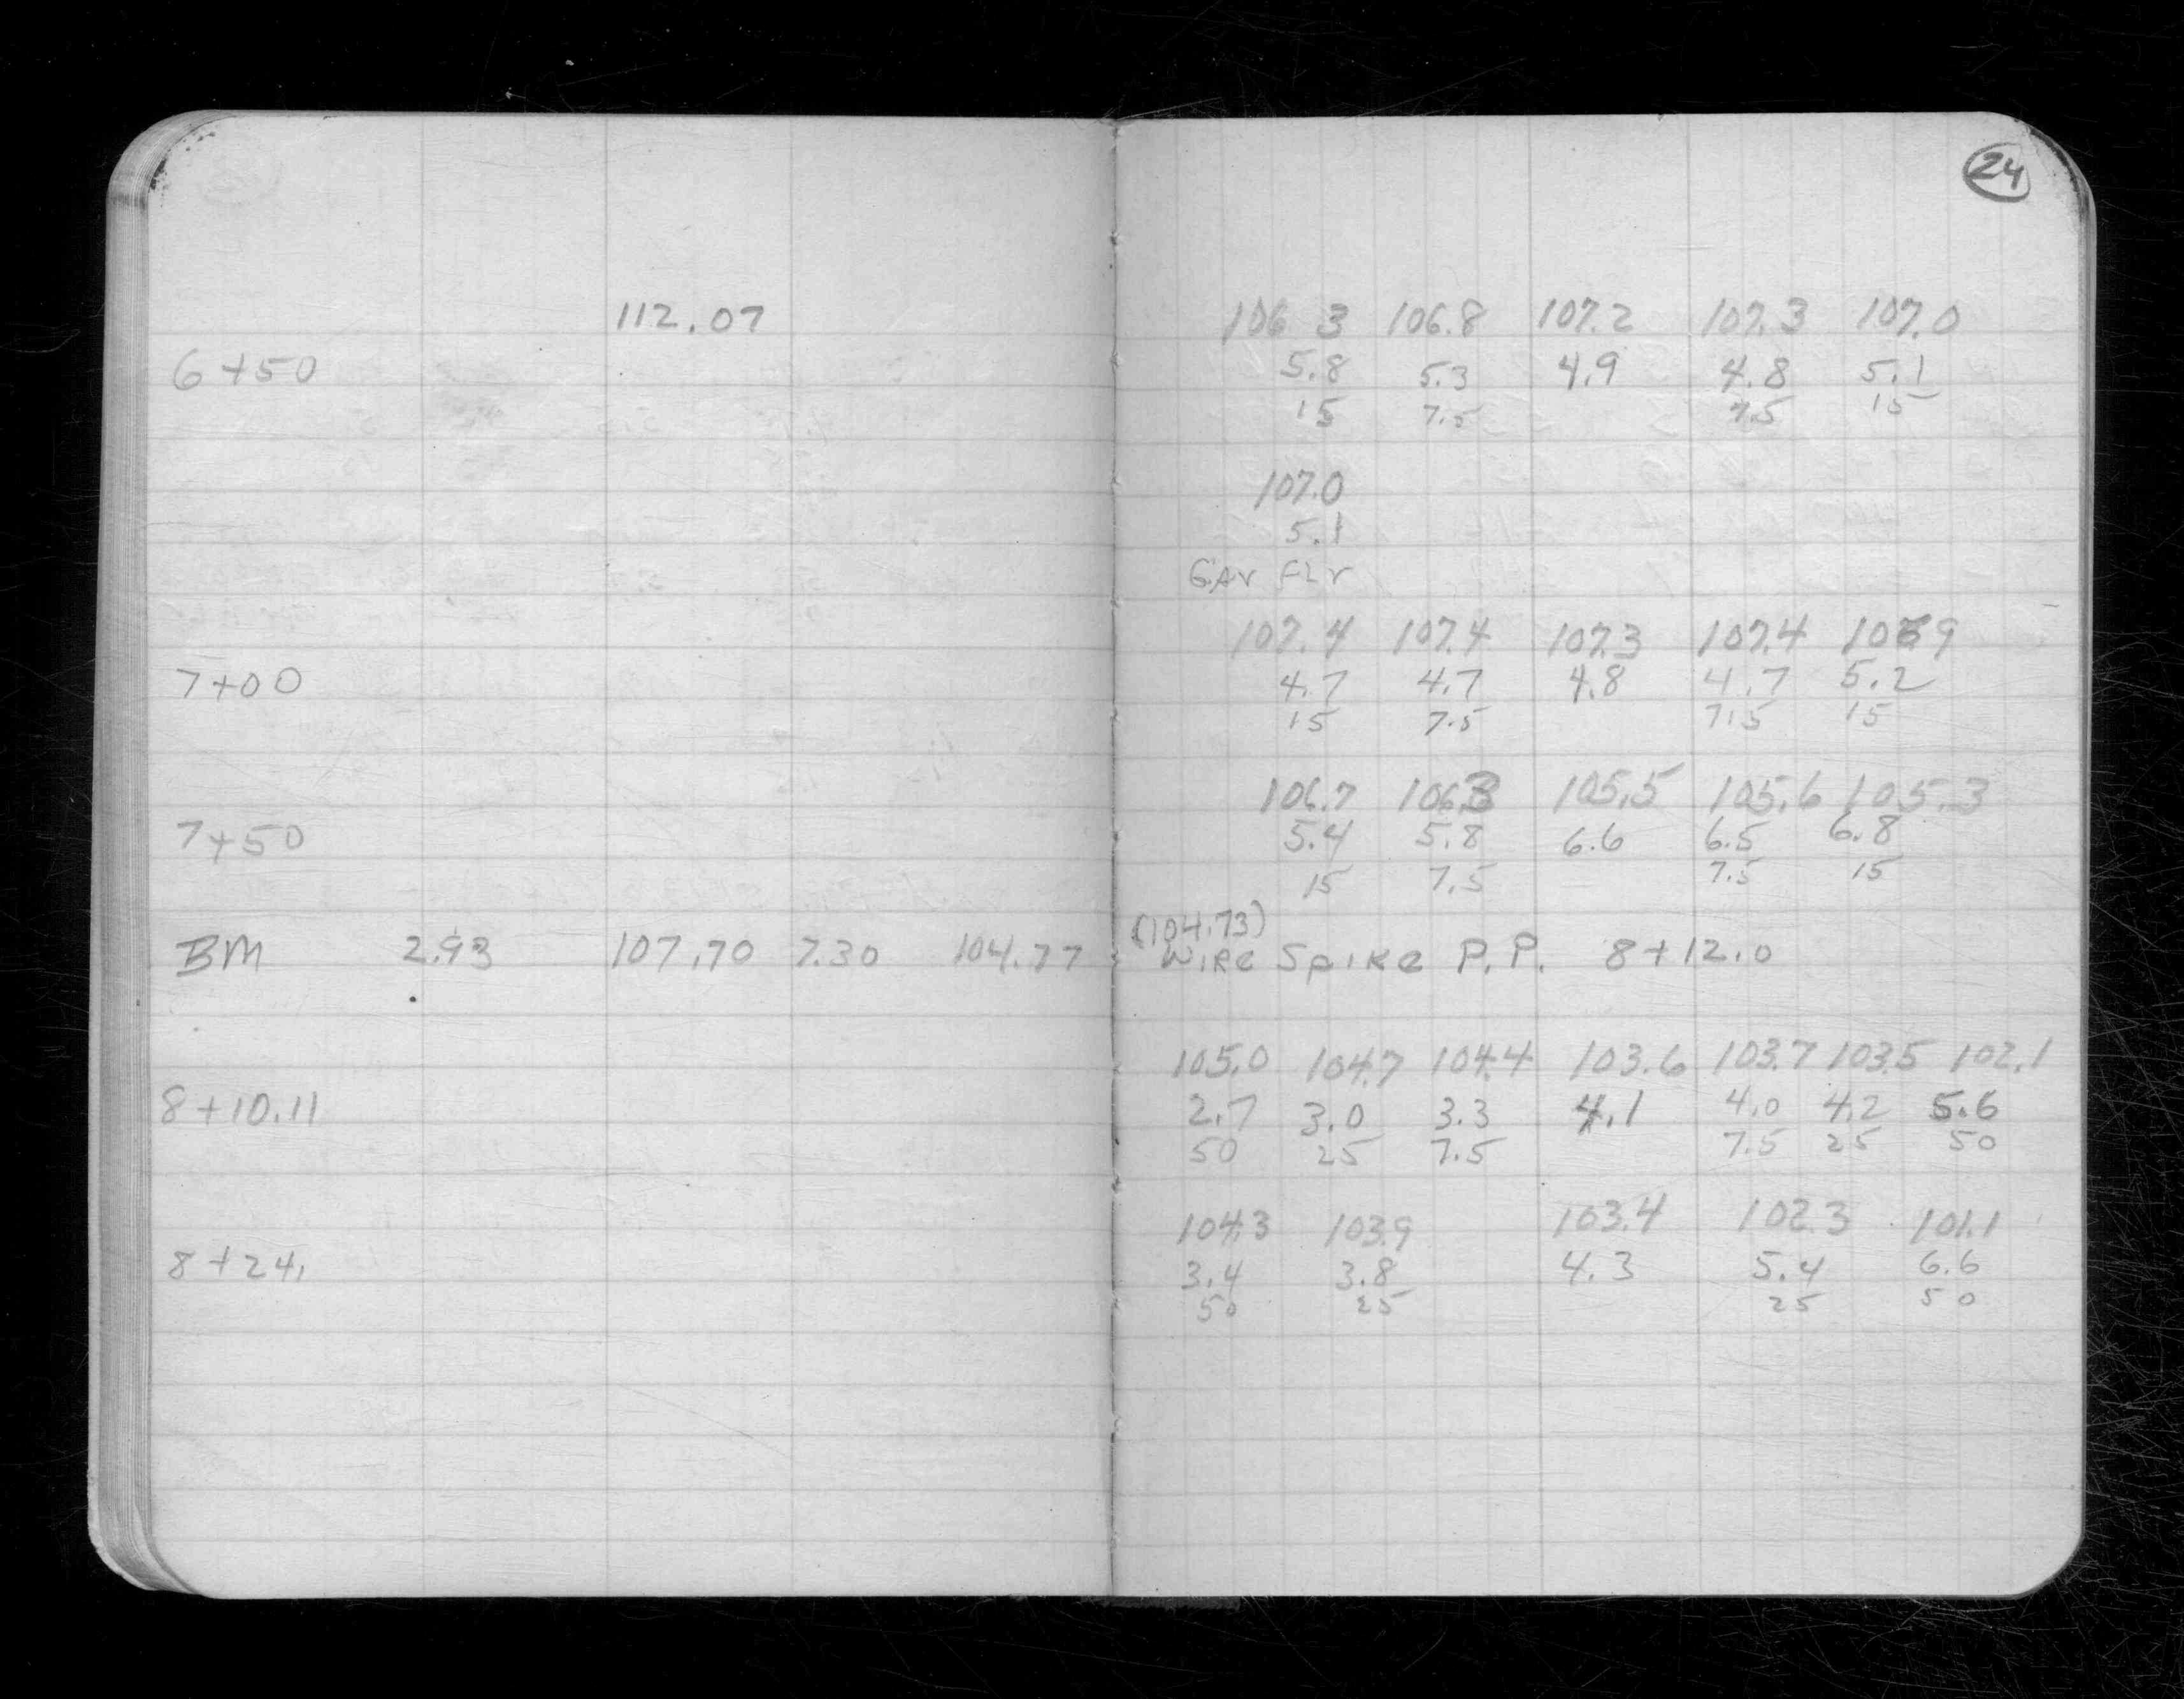 24
112.07 106 3 106.8 107.2 107.3 107.0
6+50 5.8 5.3 4.9 4.8 5.1
15 7.5 7.5 15
107.0
5.1
GAr FLr
107.4 107.4 107.3 107.4 106.9
7+00 4.7 4.7 4.8 4.7 5.2
15 7.5 7.5 15
106.7 106.3 105.5 105.6 105.3
7+50 5.4 5.8 6.6 6.5 6.8
15 7.5 7.5 15
(104.73)
BM 2.93 107.70 7.30 104.77 Wire Spike P.P. 8+12.0
105.0 104.7 104.4 103.6 103.7 103.5 102.1
8+10.11 2.7 3.0 3.3 4.1 4.0 4.2 5.6
50 25 7.5 7.5 25 50
104.3 103.9 103.4 102.3 101.1
8+24. 3.4 3.8 4.3 5.4 6.6
50 25 25 50